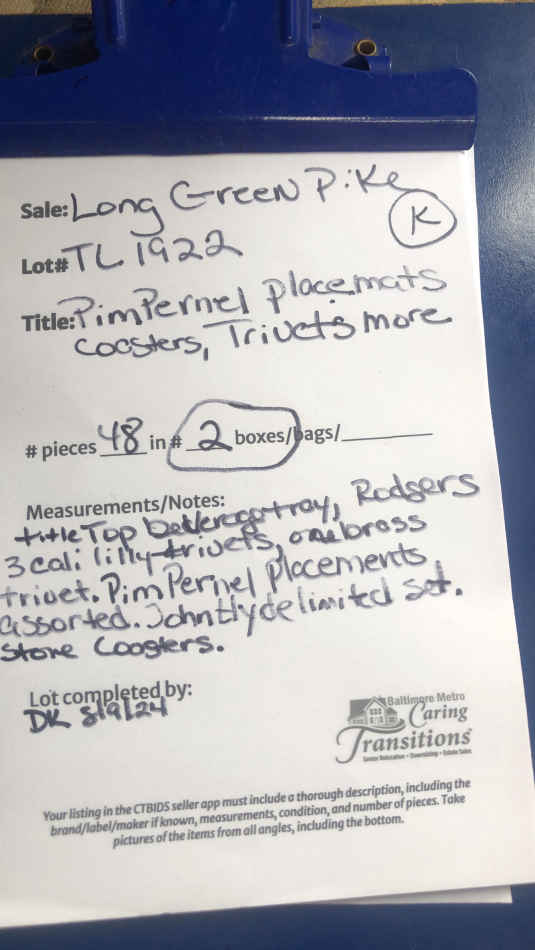 Sale: Long Green Pike
K
Lot# TL 1922
Title: PimPernel placemats
coasters, Trivets more
# pieces 48 in # 2 boxes/bags/
Measurements/Notes:
title Top tray, Rodgers
3 cali lilly trivets, one brass
trivet. PimPernel Placements
assorted. John limited set.
Stone Coosters.
Lot completed by:
DK 8/9/24
Baltimore Metro
Caring
Transitions
Senior Relocation • Downsizing • Estate Sales
Your listing in the CTBIDS seller app must include a thorough description, including the
brand/label/maker if known, measurements, condition, and number of pieces. Take
pictures of the items from all angles, including the bottom.